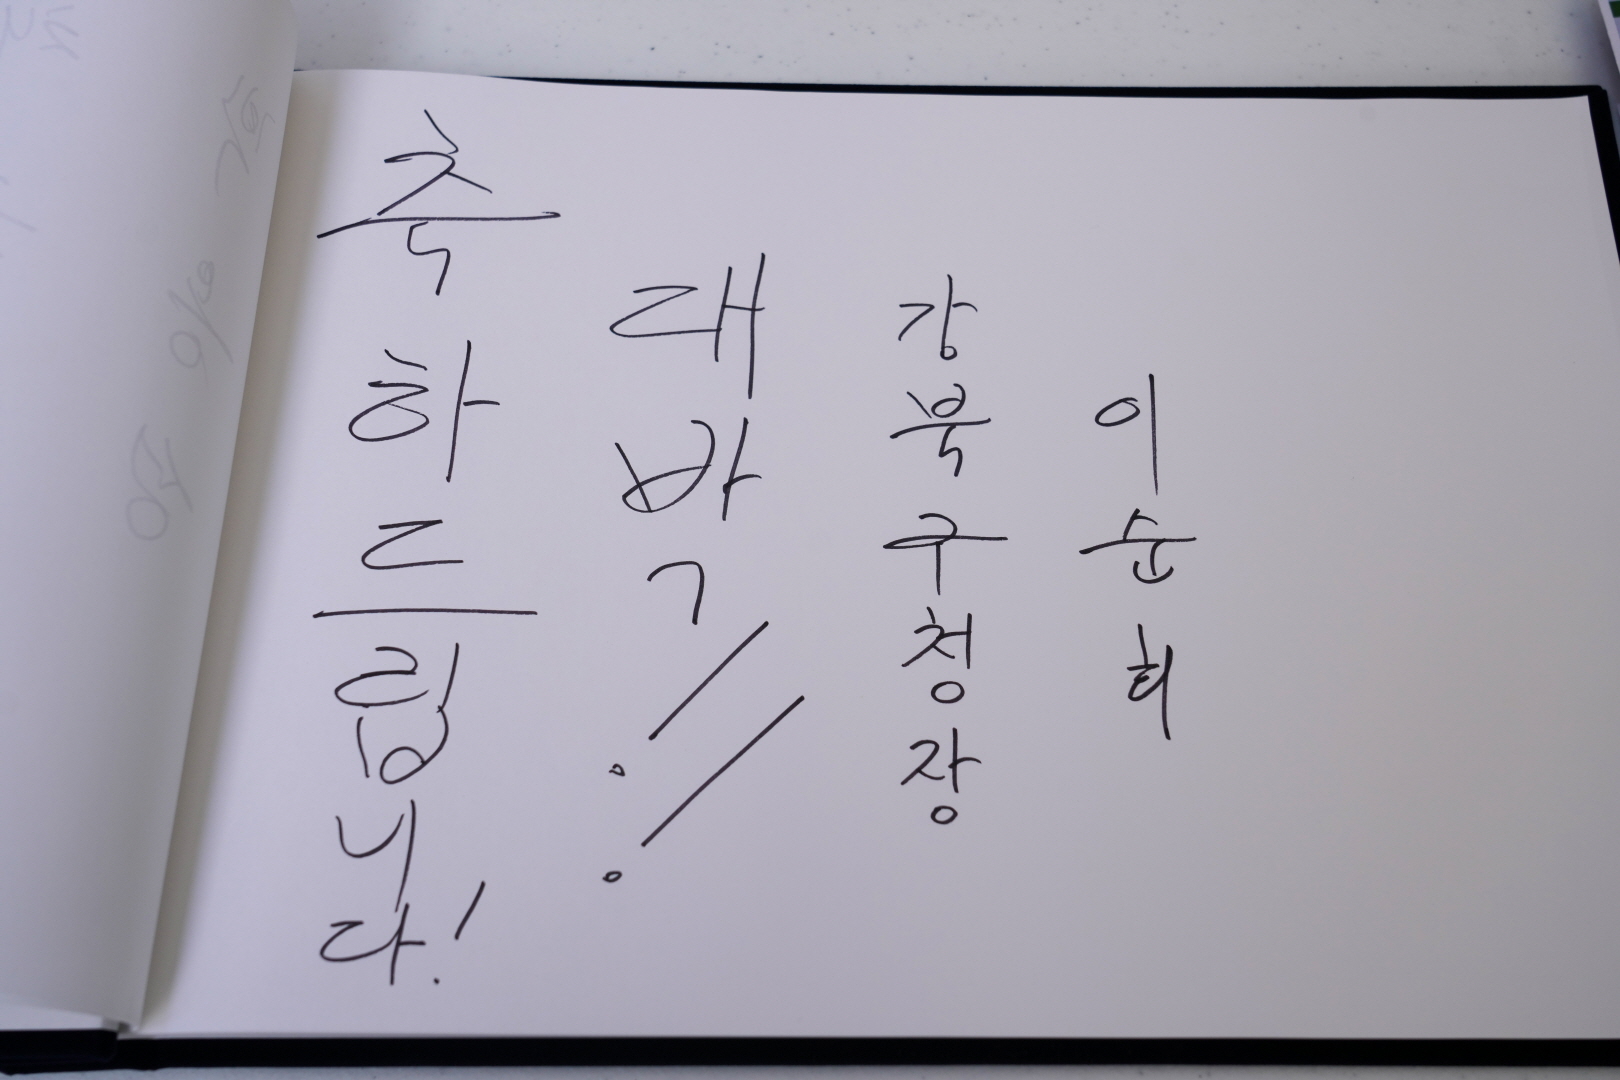 축하드립니다!
대박!!
강북구청장
이순희